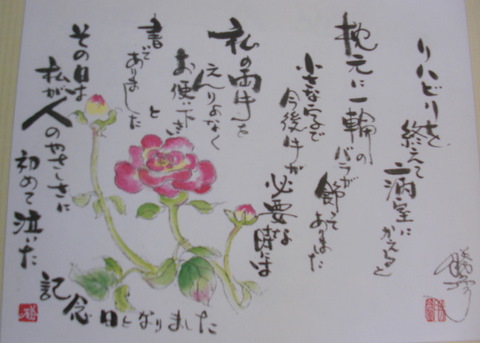 リハビリを
終えて病室にかえると
枕元に一輪の
バラが飾ってありました
小さな字で
今後手が必要な時には
私の両手を
えんりょなく
お使い下さい
と
書いてありました
その日は
私が人のやさしさに
初めて泣いた
記念日となりました